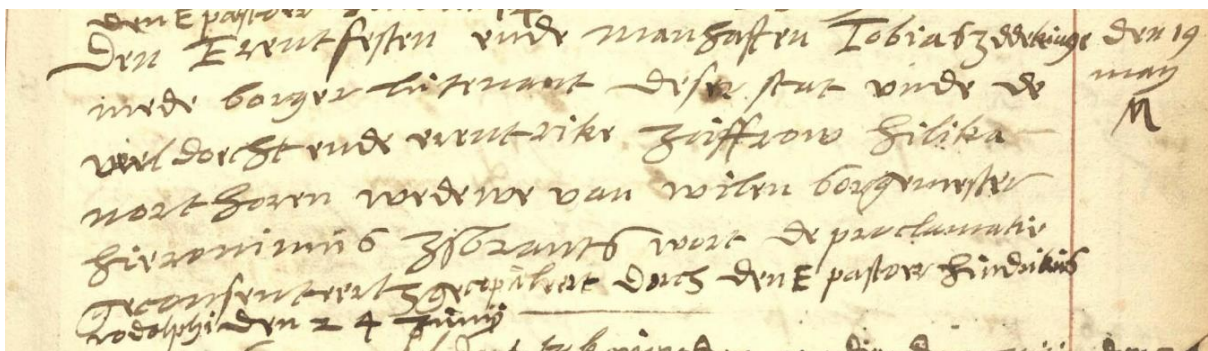 den E pastoer
Den Erentfesten ende manhaften Tobias Iddekinge den 19
mede borger lutenant deser stat unde de may
veel doecht ende erentrike Juffrow Hilika M
northoren wedewe van wilen borgemester
Hieronimus Isbrants wort de proclamatie
geconsenteert gecopuleert dorch den E pastoer Hindrikus
Rodolphi den 24 Junij